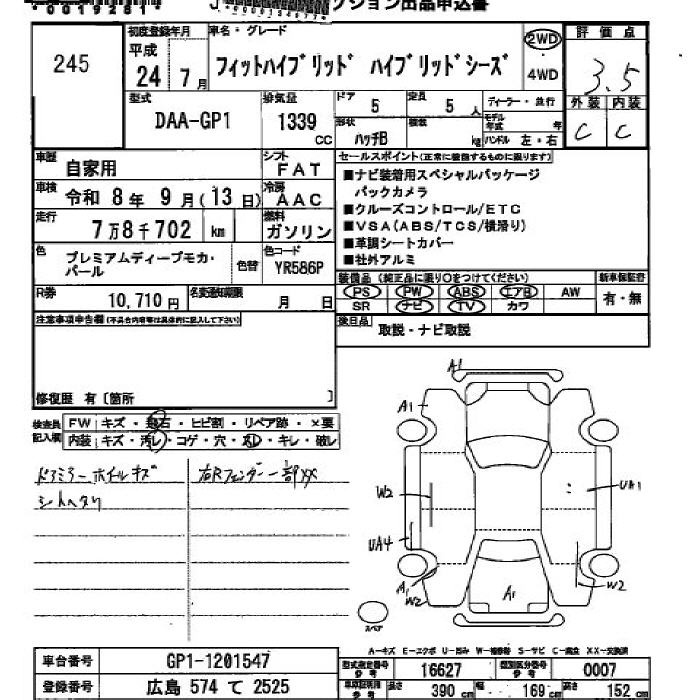 0019281
クション出品申込書
245
初度登録年月
平成
24 7月
車名・グレード
フィットハイブリッド ハイブリッドシーズ
2WD
4WD
評価点
3.5
外装 内装
C C
型式
DAA-GP1
排気量
1339
CC
ドア 5
定員 5 人
ディーラー・並行
形状 ハッチB
積載 kg
モデル年式 年
ハンドル 左・右
車歴 自家用
シフト FAT
車検 令和 8年 9月(13日)
冷房 AAC
走行 7万8千702 km
燃料 ガソリン
色 プレミアムディープモカ・パール
色替
色コード YR586P
R券 10,710円
名変通知期限 月 日
セールスポイント(正常に機能するものに限ります)
■ナビ装着用スペシャルパッケージ
バックカメラ
■クルーズコントロール/ETC
■VSA(ABS/TCS/横滑り)
■革調シートカバー
■社外アルミ
装備品(純正品に限り○をつけてください)
PS PW ABS エアB AW
SR ナビ TV カワ
新車保証書
有・無
後日品 取説・ナビ取説
注意事項申告欄(不具合内容等は具体的に記入して下さい)
修復歴 有〔箇所 〕
検査員記入欄
FW キズ・飛石・ヒビ割・リペア跡・×要
内装 キズ・汚レ・コゲ・穴・スレ・キレ・破レ
ドアミラー ホイルキズ
シートヘタリ
右Rフェンダー一部XX
A1
A1
W2
UA4
A1
W2
A1
UA1
W2
スペア
A-キズ E-エクボ U-凹み W-補修跡 S-サビ C-腐食 XX-交換済
車台番号 GP1-1201547
登録番号 広島 574 て 2525
型式指定番号 16627
類別区分番号 0007
車庫証明用参考
長さ 390 cm
幅 169 cm
高さ 152 cm